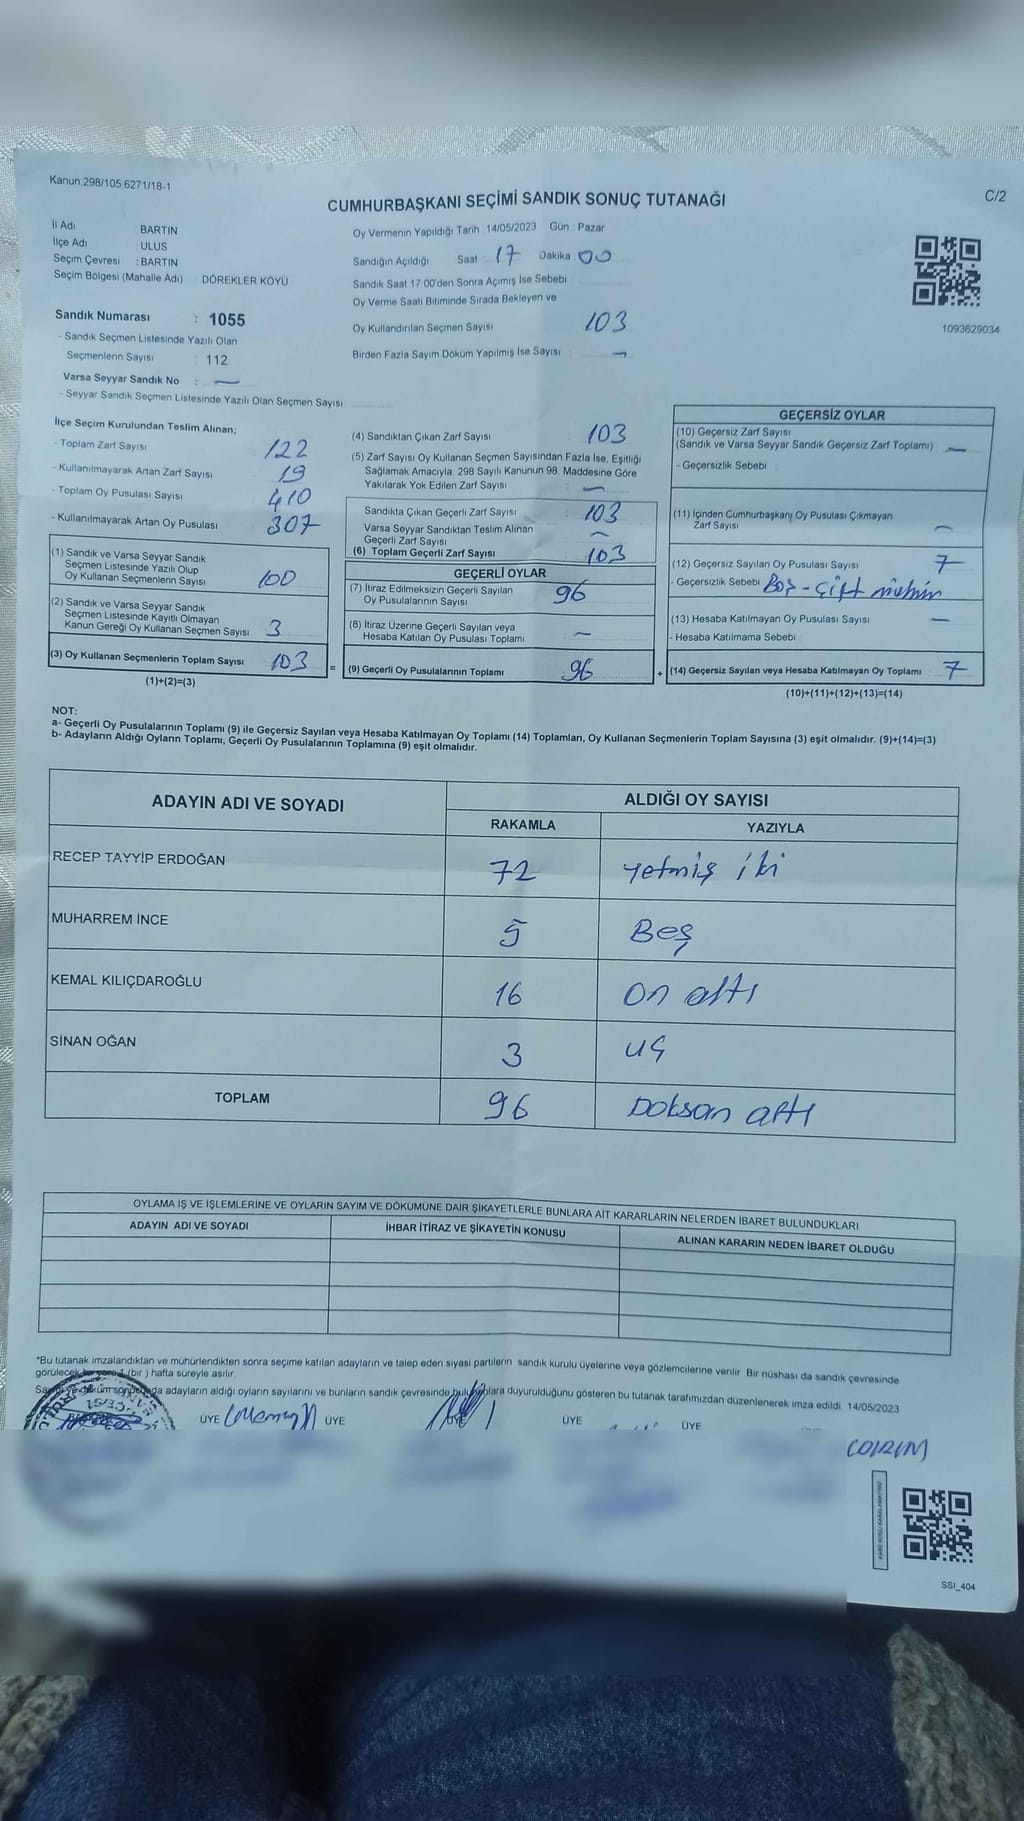 Kanun 298/105 6271/18-1
C/2
CUMHURBAŞKANI SEÇİMİ SANDIK SONUÇ TUTANAĞI
İl Adı BARTIN
İlçe Adı ULUS
Seçim Çevresi : BARTIN
Seçim Bölgesi (Mahalle Adı) DÖREKLER KÖYÜ
Sandık Numarası : 1055
- Sandık Seçmen Listesinde Yazılı Olan
Seçmenlerin Sayısı : 112
Varsa Seyyar Sandık No : —
- Seyyar Sandık Seçmen Listesinde Yazılı Olan Seçmen Sayısı
Oy Vermenin Yapıldığı Tarih 14/05/2023 Gün Pazar
Sandığın Açıldığı Saat 17 Dakika 00
Sandık Saat 17 00'den Sonra Açımış İse Sebebi
Oy Verme Saati Bitiminde Sırada Bekleyen ve
Oy Kullandırılan Seçmen Sayısı 103
Birden Fazla Sayım Döküm Yapılmış İse Sayısı —
1093629034
İlçe Seçim Kurulundan Teslim Alınan;
- Toplam Zarf Sayısı 122
- Kullanılmayarak Artan Zarf Sayısı 19
- Toplam Oy Pusulası Sayısı 410
- Kullanılmayarak Artan Oy Pusulası 307
(1) Sandık ve Varsa Seyyar Sandık
Seçmen Listesinde Yazılı Olup
Oy Kullanan Seçmenlerin Sayısı 100
(2) Sandık ve Varsa Seyyar Sandık
Seçmen Listesinde Kayıtlı Olmayan
Kanun Gereği Oy Kullanan Seçmen Sayısı 3
(3) Oy Kullanan Seçmenlerin Toplam Sayısı 103
(1)+(2)=(3)
=
(4) Sandıktan Çıkan Zarf Sayısı 103
(5) Zarf Sayısı Oy Kullanan Seçmen Sayısından Fazla İse, Eşitliği
Sağlamak Amacıyla, 298 Sayılı Kanunun 98. Maddesine Göre
Yakılarak Yok Edilen Zarf Sayısı —
Sandıkta Çıkan Geçerli Zarf Sayısı 103
Varsa Seyyar Sandıktan Teslim Alınan
Geçerli Zarf Sayısı —
(6) Toplam Geçerli Zarf Sayısı 103
GEÇERLİ OYLAR
(7) İtiraz Edilmeksizin Geçerli Sayılan
Oy Pusulalarının Sayısı 96
(8) İtiraz Üzerine Geçerli Sayılan veya
Hesaba Katılan Oy Pusulası Toplamı —
(9) Geçerli Oy Pusulalarının Toplamı 96
+
GEÇERSİZ OYLAR
(10) Geçersiz Zarf Sayısı
(Sandık ve Varsa Seyyar Sandık Geçersiz Zarf Toplamı) —
- Geçersizlik Sebebi :
(11) İçinden Cumhurbaşkanı Oy Pusulası Çıkmayan
Zarf Sayısı —
(12) Geçersiz Sayılan Oy Pusulası Sayısı 7
- Geçersizlik Sebebi Boş - Çift mühür
(13) Hesaba Katılmayan Oy Pusulası Sayısı —
- Hesaba Katılmama Sebebi
(14) Geçersiz Sayılan veya Hesaba Katılmayan Oy Toplamı 7
(10)+(11)+(12)+(13)=(14)
NOT:
a- Geçerli Oy Pusulalarının Toplamı (9) ile Geçersiz Sayılan veya Hesaba Katılmayan Oy Toplamı (14) Toplamları, Oy Kullanan Seçmenlerin Toplam Sayısına (3) eşit olmalıdır. (9)+(14)=(3)
b- Adayların Aldığı Oyların Toplamı, Geçerli Oy Pusulalarının Toplamına (9) eşit olmalıdır.
ADAYIN ADI VE SOYADI
ALDIĞI OY SAYISI
RAKAMLA YAZIYLA
RECEP TAYYİP ERDOĞAN 72 yetmiş iki
MUHARREM İNCE 5 Beş
KEMAL KILIÇDAROĞLU 16 on altı
SİNAN OĞAN 3 uç
TOPLAM 96 Doksan altı
OYLAMA İŞ VE İŞLEMLERİNE VE OYLARIN SAYIM VE DÖKÜMÜNE DAİR ŞİKAYETLERLE BUNLARA AİT KARARLARIN NELERDEN İBARET BULUNDUKLARI
ADAYIN ADI VE SOYADI İHBAR İTİRAZ VE ŞİKAYETİN KONUSU ALINAN KARARIN NEDEN İBARET OLDUĞU
*Bu tutanak imzalandıktan ve mühürlendikten sonra seçime katılan adayların ve talep eden siyasi partilerin sandık kurulu üyelerine veya gözlemcilerine verilir. Bir nüshası da sandık çevresinde
görülecek 1 (bir ) hafta süreyle asılır.
adayların aldığı oyların sayılarını ve bunların sandık çevresinde duyurulduğunu gösteren bu tutanak tarafımızdan düzenlenerek imza edildi. 14/05/2023
ÜYE ÜYE ÜYE ÜYE
SSI_404